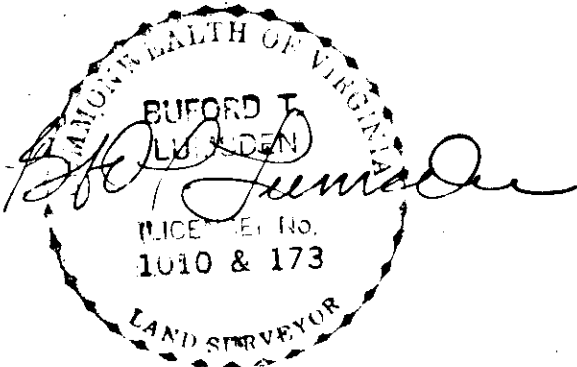 COMMONWEALTH OF VIRGINIA
BUFORD T.
LUMSDEN
(LICENSE) No.
1010 & 173
LAND SURVEYOR